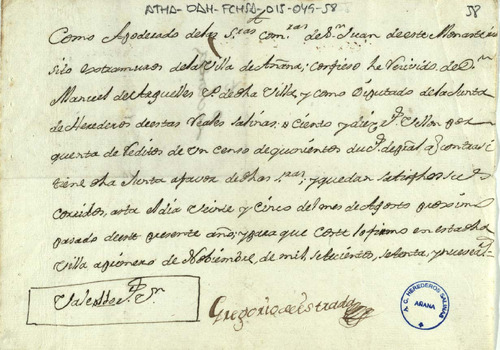 ATHA-DAH-FCHSA-015-049-58
58
Como Apoderado de las S.ras Com.ras de S.n Juan de este Monaste
rio extramuros de la Villa de Añana; Confieso he recivido de D.n
Manuel de Arguelles V.º de dha Villa, y como Diputado de la Junta
de Herederos de estas Reales Salinas, Ciento y diez r.s Vellon por
quenta de reditos de un censo de quinientos du.s de pral q contra si
tiene dha Junta afavor de dhas S.ras; y quedan satisfhos sus
corridos, asta el dia Veinte y Cinco del mes de Agosto proximo
pasado de este presente año; y para que coste lo firmo en esta dha
Villa a primero de Nobiembre, de mil setecientos, setenta, y nueve
Vale
Gregorio de Estrada
A.C. HEREDEROS SALINAS
AÑANA